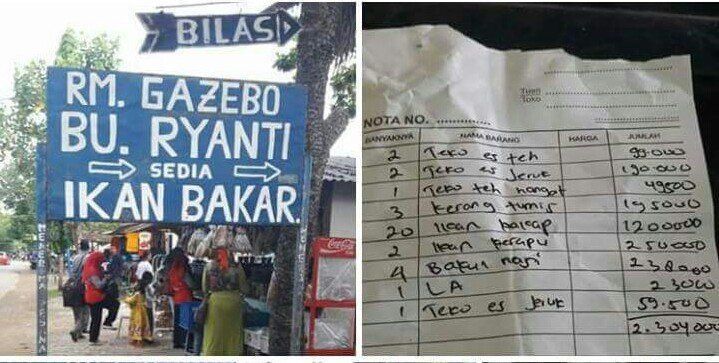 BILAS
RM. GAZEBO
BU. RYANTI
SEDIA
IKAN BAKAR.
Coca-Cola
Tuan
Toko
NOTA NO.
BANYAKNYA NAMA BARANG HARGA JUMLAH
2 Teko es teh 99.000
2 Teko es jeruk 190.000
1 Teko teh hangat 49500
3 kerang tumis 195000
20 Ikan kakap 1200000
2 Ikan kerapu 250000
4 Bakul nasi 238000
1 LA 23000
1 Teko es jeruk 59.500
2.304.000